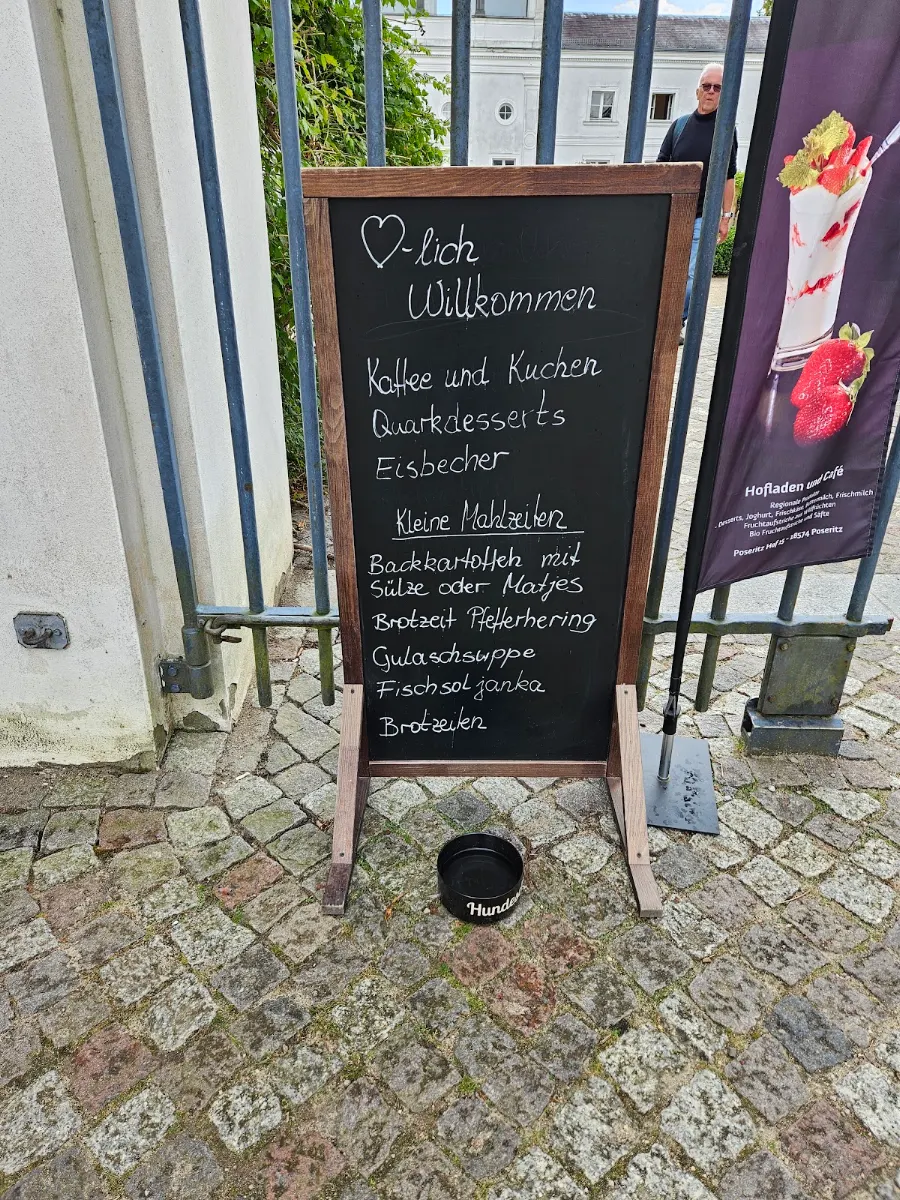 ♡-lich
Willkommen
Kaffee und Kuchen
Quarkdesserts
Eisbecher
Kleine Mahlzeiten
Backkartoffeln mit
Sülze oder Matjes
Brotzeit Pfefferhering
Gulaschsuppe
Fischsoljanka
Brotzeiten
Hunde
Hofladen und Café
Regionale Produkte
Desserts, Joghurt, Frischkäse, Buttermilch, Frischmilch
Fruchtaufstriche aus Wildfrüchten
Bio Fruchtaufstriche und Säfte
Poseritz Hof 15 - 18574 Poseritz